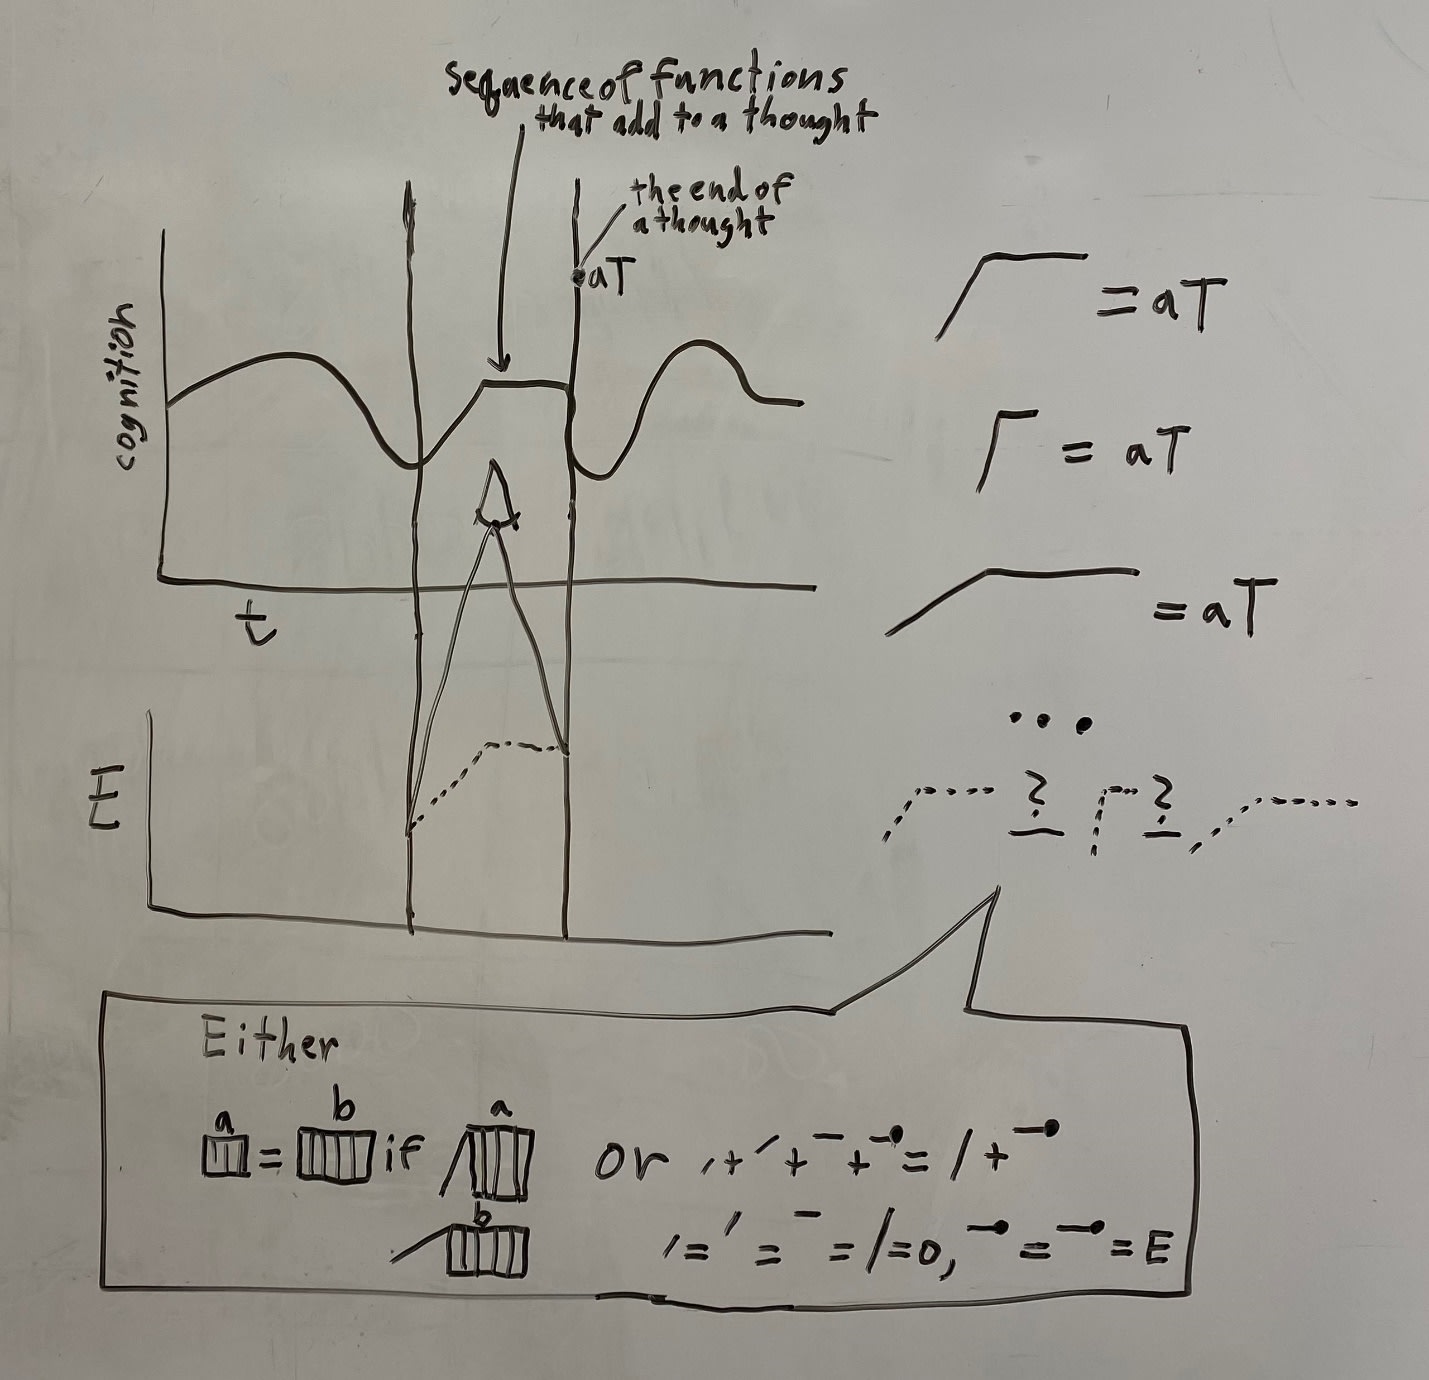 sequence of functions
that add to a thought
the end of
a thought
aT
cognition
t
E
= aT
= aT
= aT
...
? ?
Either
a = b if a
b
or + + + = / +
= = = / = 0, = = E